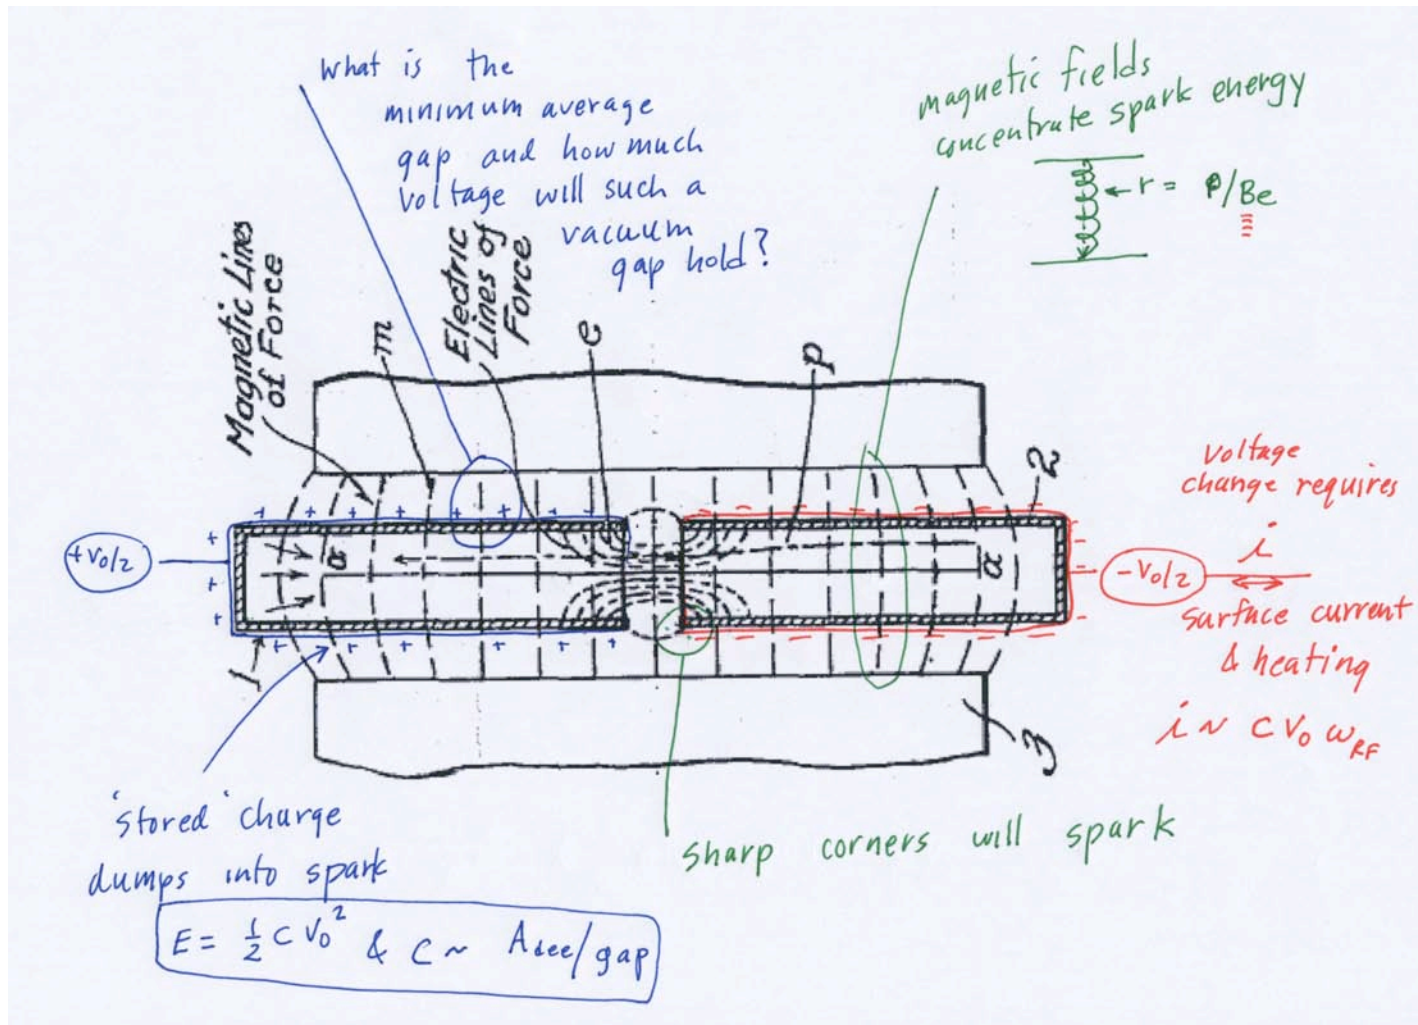 What is the
minimum average
gap and how much
voltage will such a
vacuum
gap hold?
magnetic fields
concentrate spark energy
r = P/Be
Magnetic Lines
of Force
m
Electric
Lines of
Force
e
p
2
voltage
change requires
i
+V₀/2
a
a
-V₀/2
surface current
& heating
i ~ C V₀ ω_RF
1
3
'stored' charge
dumps into spark
E = ½ C V₀² & C ~ A_dee/gap
sharp corners will spark